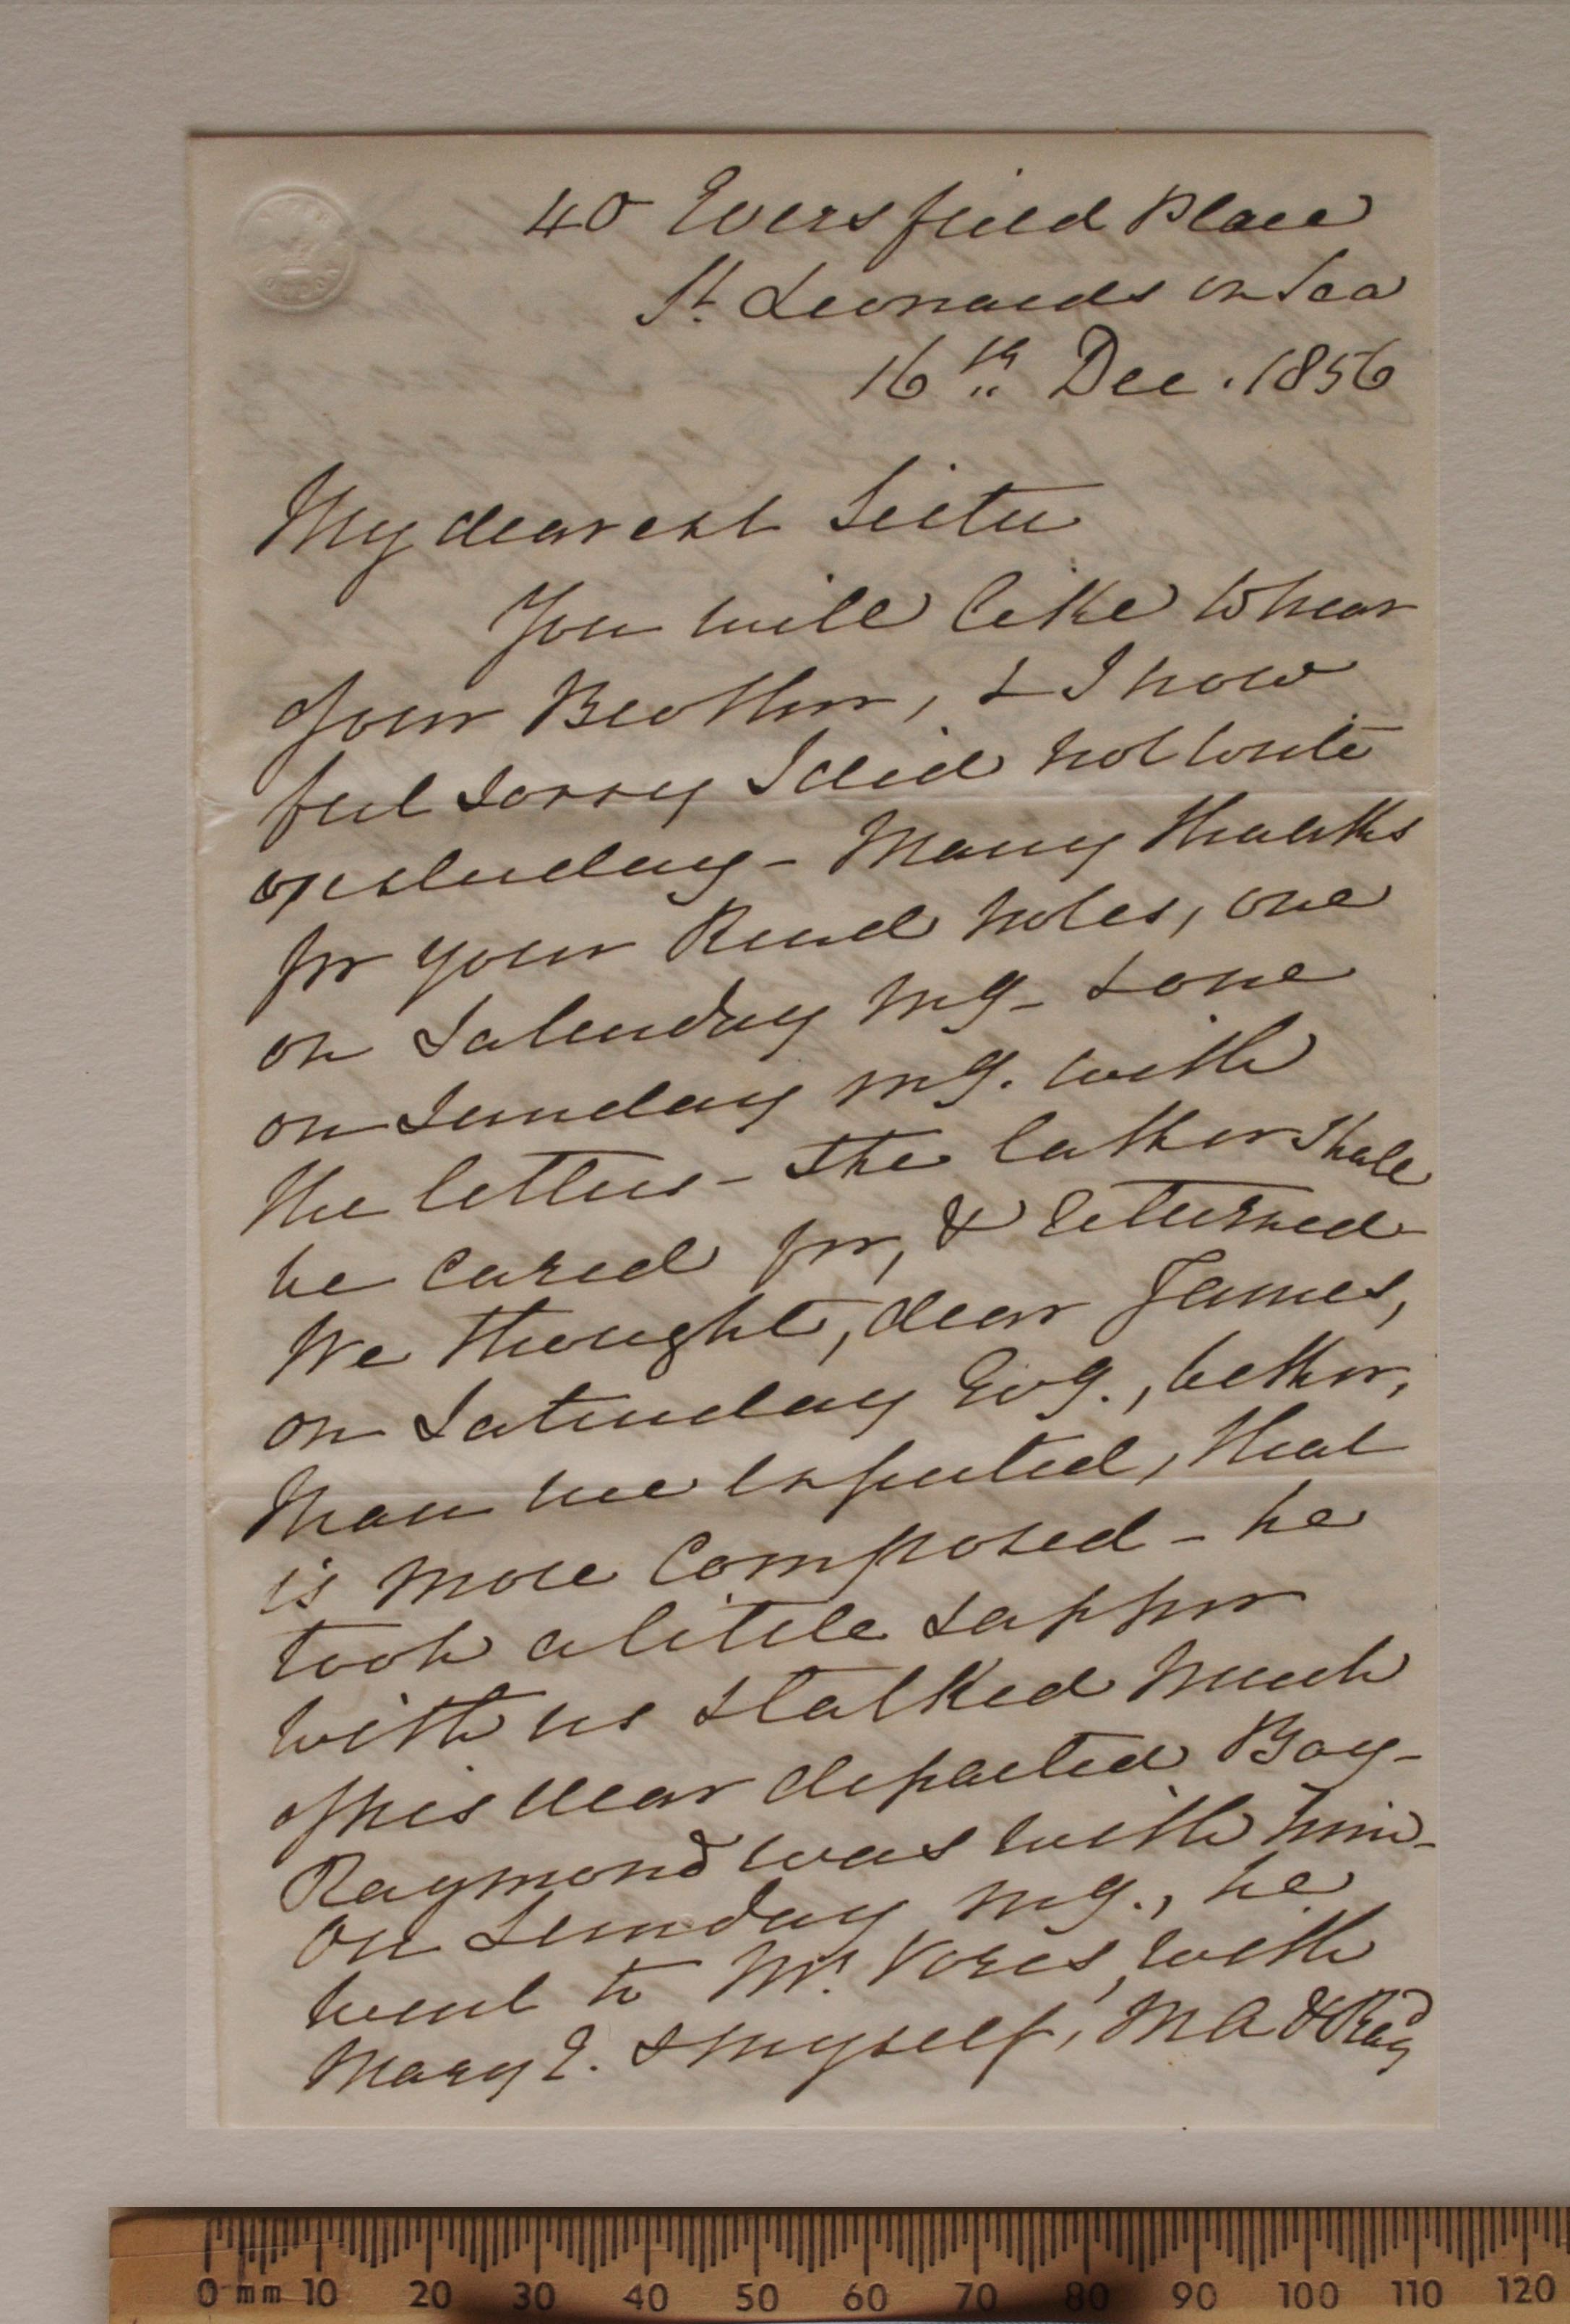 40 Eversfield Place
St. Leonards on Sea
16th Dec. 1856
My dearest Sister
You will like to hear
of our Brother, & I now
feel sorry I did not write
yesterday - Many thanks
for your kind notes, one
on Saturday mg - & one
on Sunday mg. with
the letters - The latter shall
be cared for, & returned
We thought, dear James,
on Saturday Evg., better,
than we expected, that
is more composed - he
took a little supper
with us & talked much
of his dear departed Boy -
Raymond was with him -
On Sunday mg., he
went to Mr. Vores, with
Mary E. & myself, M A & Rayd
0 mm 10 20 30 40 50 60 70 80 90 100 110 120